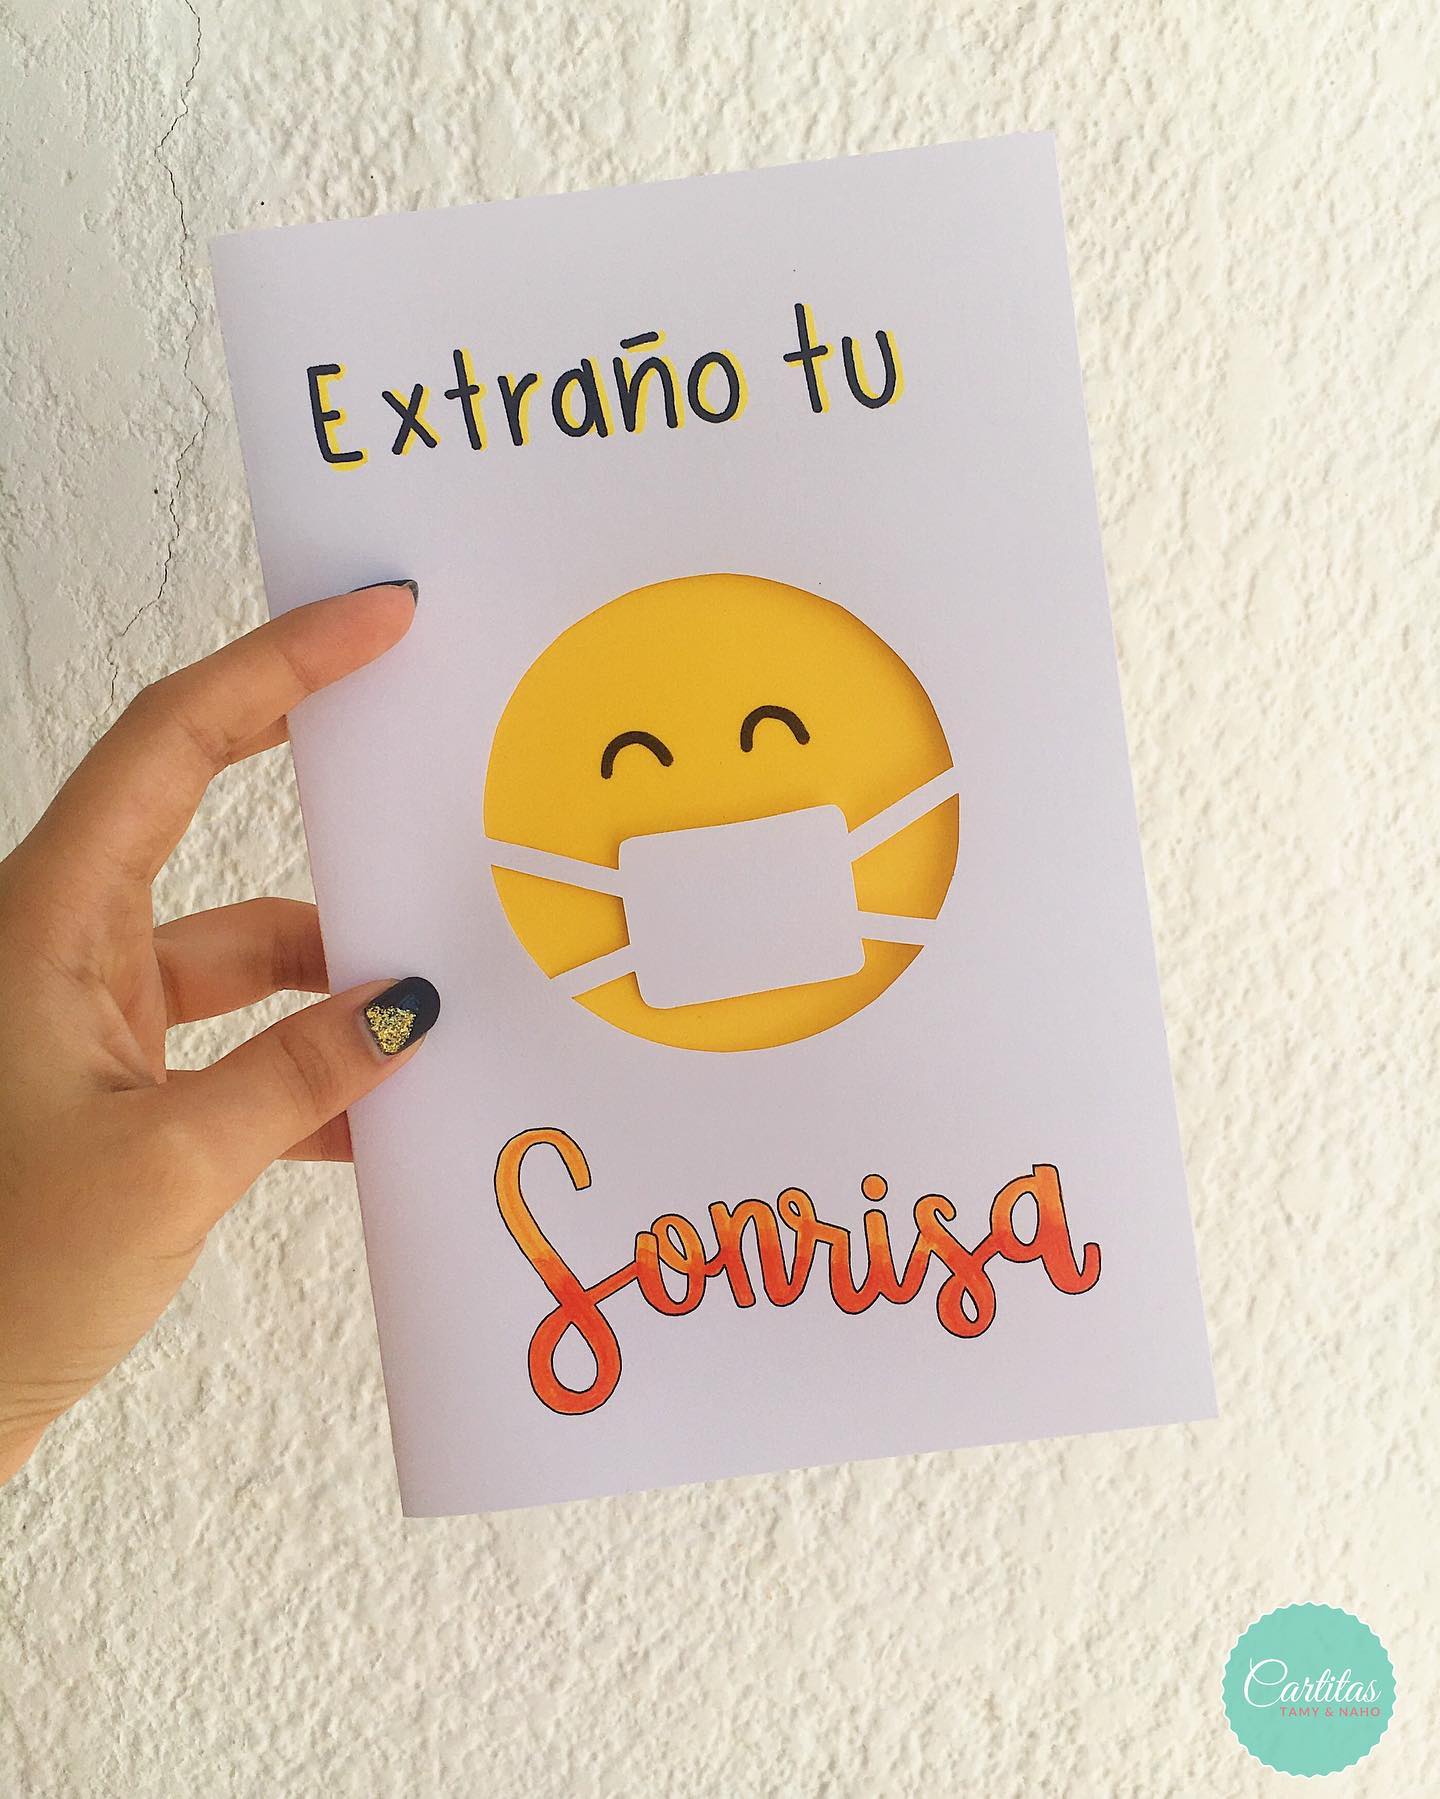 Extraño tu
Sonrisa
Cartitas
TAMY & NAHO